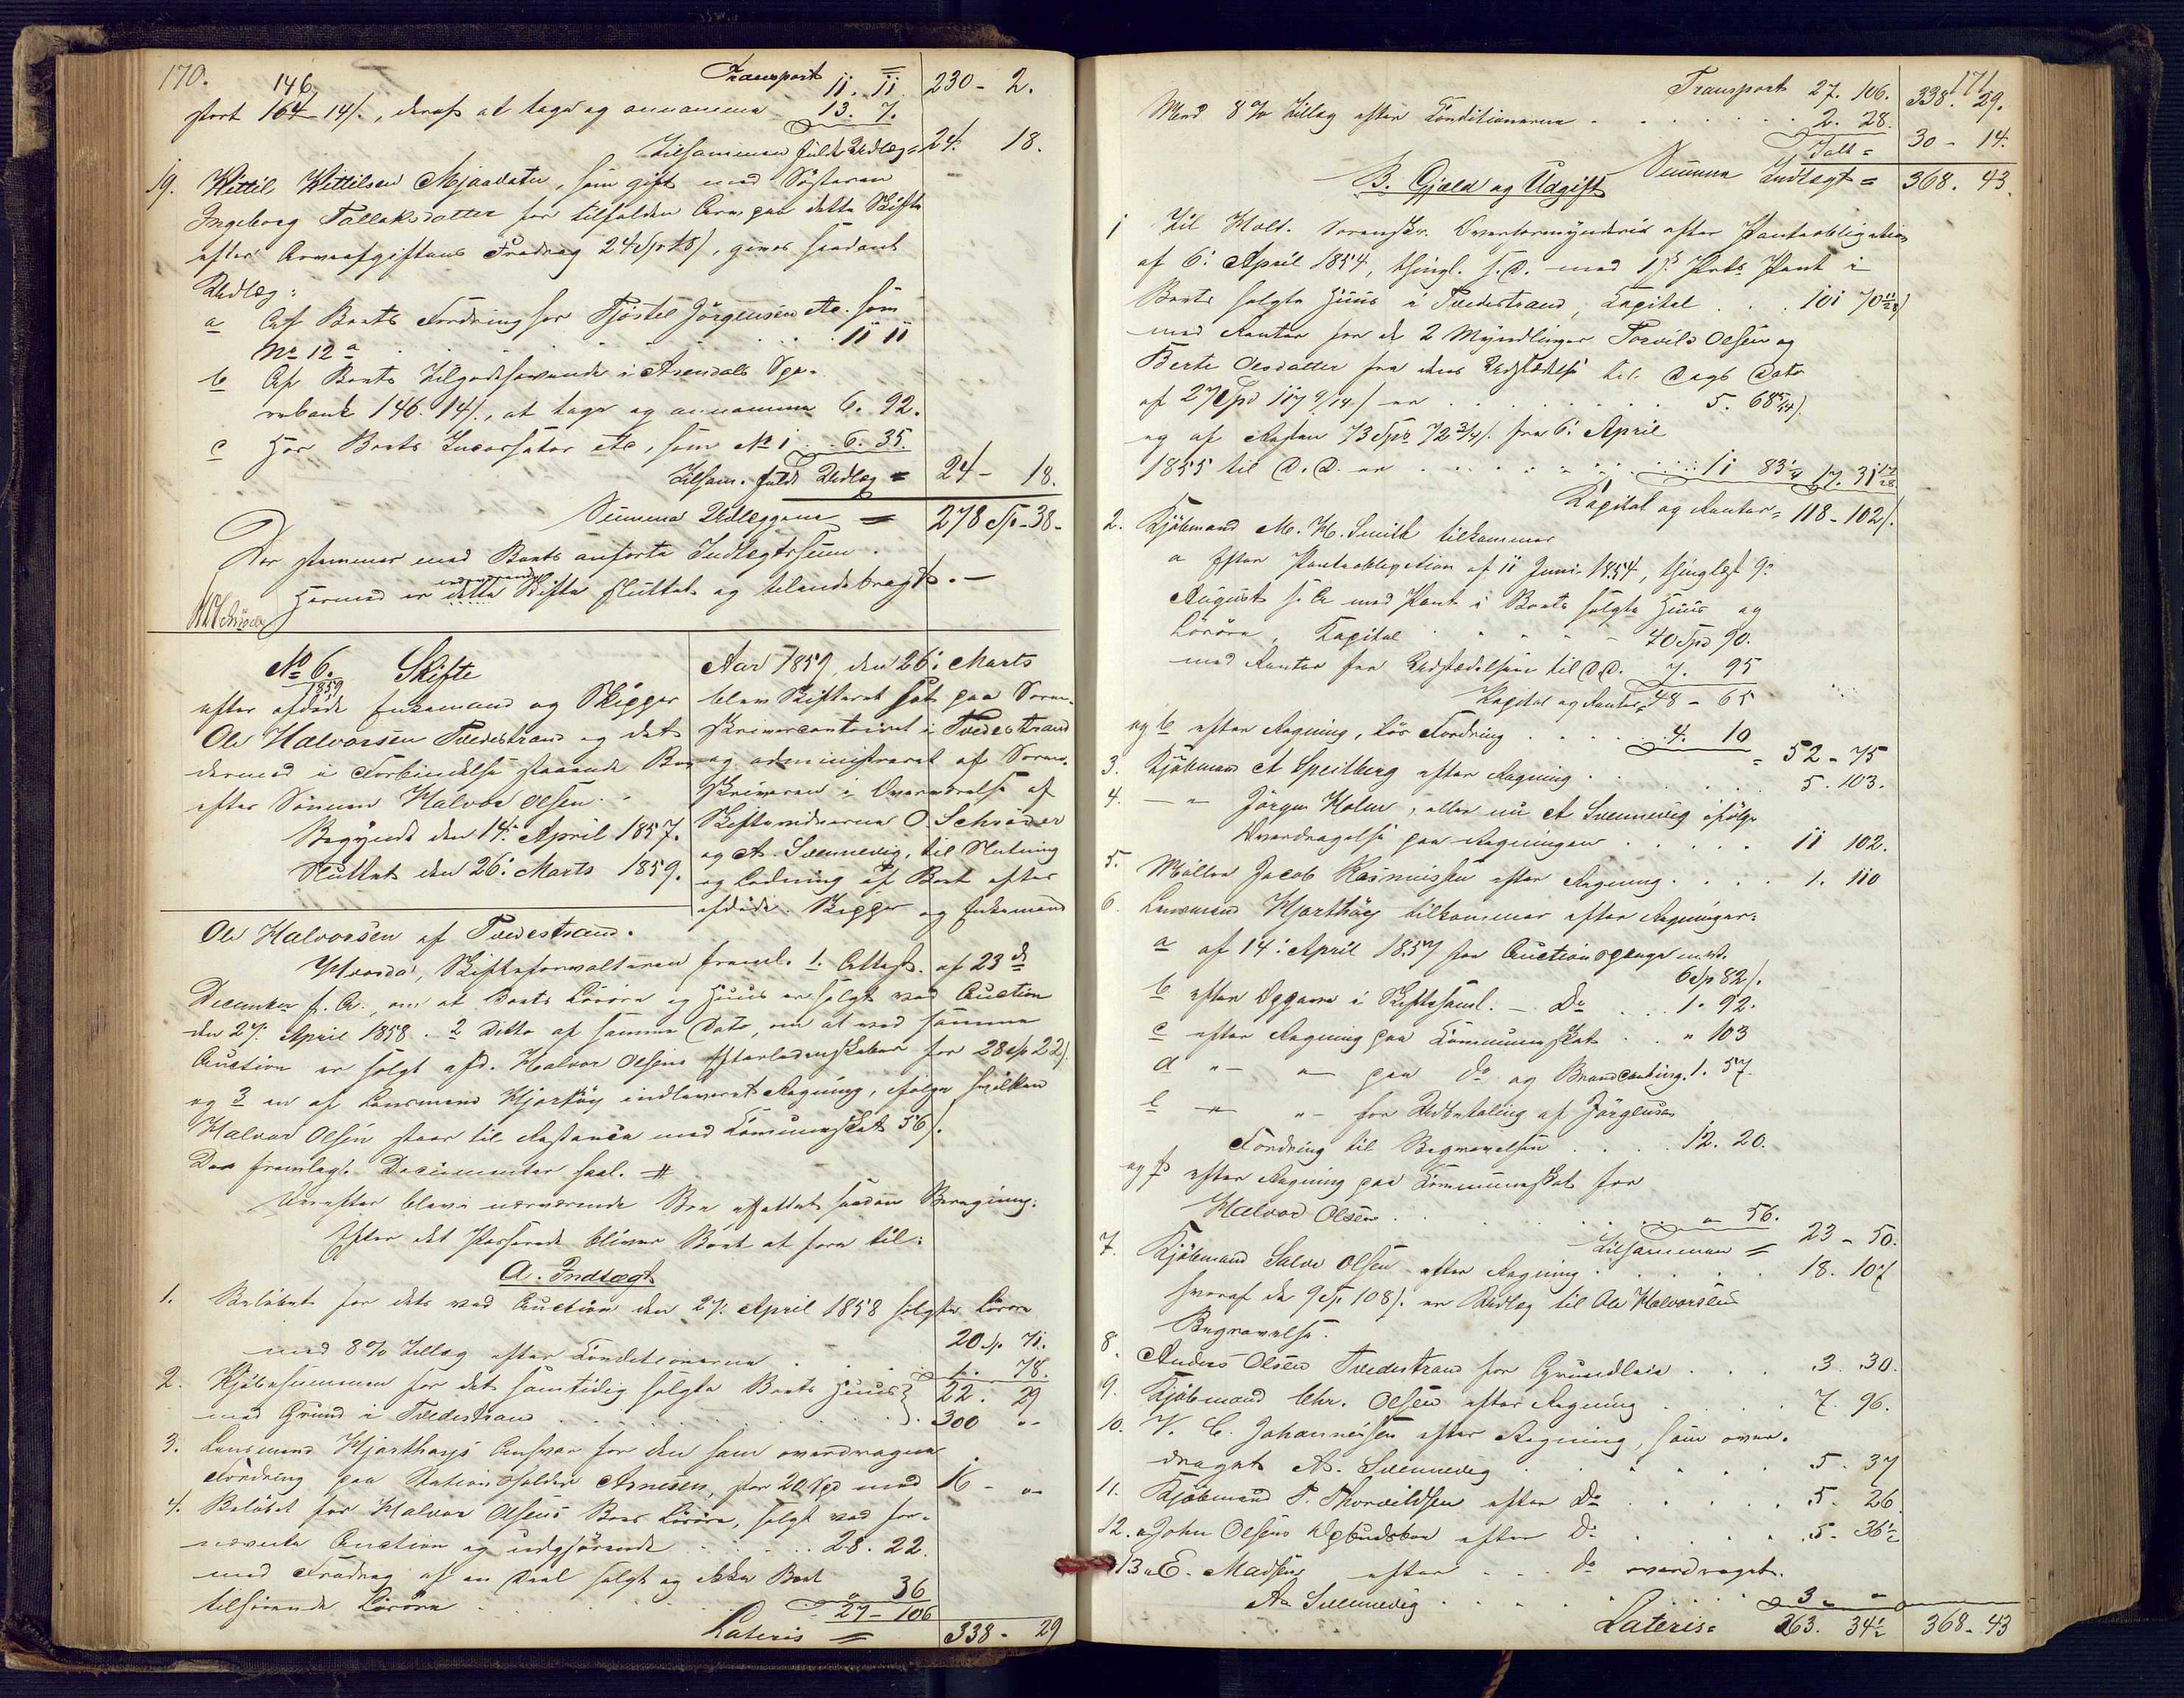 170.
146
Transport 11. 11. 230 - 2.
stort 164 14/., deraf at tage og annamme 13. 7.
Tilsammen fuldt Udlæg = 24. 18.
19. Kittil Kittilsen Mjaavatn, som gift med Søsteren
Ingeborg Tallaksdatter for tilfalden Arv paa dette Skifte
efter Arveafgiftens Fradrag 24 Spd 18/, gives saadant
Udlæg:
a Af Boets Fordring hos Kjøstel Jørgensen etc. som
No 12 a . . . . . 11 11
b Af Boets Tilgodehavende i Arendals Spa-
rebank 146. 14/., at tage og annamme 6. 92.
c Hos Boets Incassator etc, som No 1 . . 6. 35.
Tilsam. fuldt Udlæg = 24 - 18.
Summa Udlæggene = 278 Sp - 38 -
Der stemmer med Boets anførte Indtægtssum.
Hermed er dette Skifte sluttet og tilendebragt. -
No 6. 1859 Skifte
efter afdøde Enkemand og Skipper
Ole Halvorsen Tvedestrand og det
dermed i Forbindelse staaende Bo
efter Sønnen Halvor Olsen.
Begyndt den 14de April 1857.
Sluttet den 26: Marts 1859.
Aar 1859, den 26: Marts
blev Skifteret sat paa Soren-
skrivercontoiret i Tvedestrand
og administreret af Soren-
skriveren i Overværelse af
Skiftevidnerne O. Schrøder
og A. Svennevig, til Slutning
og Lodning af Boet efter
afdøde Skipper og Enkemand
Ole Halvorsen af Tvedestrand.
Skifteforvalteren freml. 1. Attest af 23de
December f. A., om at Boets Løsøre og Huus er solgt ved Auction
den 27. April 1858. 2 Ditto af samme Dato, om at ved samme
Auction er solgt afd. Halvor Olsens Efterladenskaber for 28 Sp 22/.
og 3 en af Lensmand Hjorthøy indleveret Regning, ifølge hvilken
Halvor Olsen staar til Restance med Kommuneskat 56/.
De fremlagte Documenter saal. #
Derefter blev nærværende Bo affattet saadan Beregning:
Efter det Passerede bliver Boet at føre til:
A. Indtægt
1. Beløbet for dets ved Auction den 27. April 1858 solgte Løsøre
20 Sp. 71.
med 8 % Tillæg efter Conditionerne . . . 1. 78.
22. 29
2. Kjøbesummen for det samtidig solgte Boets Huus
med Grund i Tvedestrand . . . . 300 "-
3. Lensmand Hjorthøys Ansvar for den ham overdragne
Fordring paa Stationsholder Arnesen, stor 20 Spd med 16 - "-
4. Beløbet for Halvor Olsens Boes Løsøre, solgt ved før-
nævnte Auction og udgjørende . . . 28. 22.
med Fradrag af en Deel solgt og ikke Boet
tilhørende Løsøre . . . . " 36
27 - 106
Lateris = 338 - 29
171
Transport 27. 106. 338. 29.
Med 8 % Tillæg efter Conditionerne . . . 2. 28.
Talt = 30 - 14.
Summa Indtægt = 368. 43.
B. Gjæld og Udgift
1 Til Holt. Sorenskr. Overformynderie efter Panteobligation
af 6: April 1854, thingl. s. D. med 1ste Prts. Pant i
Boets solgte Huus i Tvedestrand, Kapital . . . 101 70 11/28)
med Renter for de 2 Myndlinger Torvild Olsen og
Berte Olesdatter fra dens Udstædelse til Dags Dato
af 27 Spd 117 9/14/ er . . . . 5. 68 5/14)
og af Resten 73 Spd 72 3/4/. fra 6: April
1855 til D. D. er . . . . 11 83 1/4 17. 31 17/28
Kapital og Renter = 118 - 102/.
2. Kjøbmand M. H. Smith tilkommer
a Efter Panteobligation af 11 Juni 1854, thinglæst 9:
August s. A. med Pant i Boets solgte Huus og
Løsøre, Kapital . . . 40 Spd 90.
med Renter fra Udstædelsen til D. D. 7. 95
Kapital og Renter = 48 - 65
og b efter Regning, løs Fordring . . . . 4. 10 = 52 - 75
3. Kjøbmand A Speilberg efter Regning . . . . 5. 103.
4. - " Jørgen Holm, eller nu A Svennevig ifølge
Overdragelse paa Regningen . . . . 11 102.
5. Møller Jacob Rasmussen efter Regning . . . . 1. 110
6. Lensmand Hjorthøy tilkommer efter Regninger:
a af 14: April 1857 for Auctionspenge m. m.
6 Sp 82/.
b efter Opgave i Skiftesaml. - Do . . 1. 92.
c efter Regning paa Kommuneskat . . " 103
d " - " - paa do og Brandconting. 1. 57.
e " - " - for Udbetaling af Jørgensens
Fordring til Begravelsen . . . . 12. 20.
og f efter Regning paa Kommuneskat for
Halvor Olsen . . . . . " 56.
Tilsammen = 23 - 50.
7. Kjøbmand Salve Olsen efter Regning . . . . 18. 107
hvoraf de 9 Sp. 108/. er Udlæg til Ole Halvorsens
Begravelse.
8. Anders Olsen Tvedestrand for Grundleie . . . 3. 30.
9. Kjøbmand Chr. Olsen efter Regning . . . . 7. 96.
10. V. C. Johannesen efter Regning, som over-
draget A. Svennevig . . . . 5. 37
11. Kjøbmand T. Thorvildsen efter Do . . . . 5. 26
12. John Olsens Opbudsbo efter Do . . . . 5. 36 1/2
13 E. Madsen efter . . . do overdraget.
A. Svennevig . . . . . 3 - "
Lateris = 263. 34 1/2 368 - 43